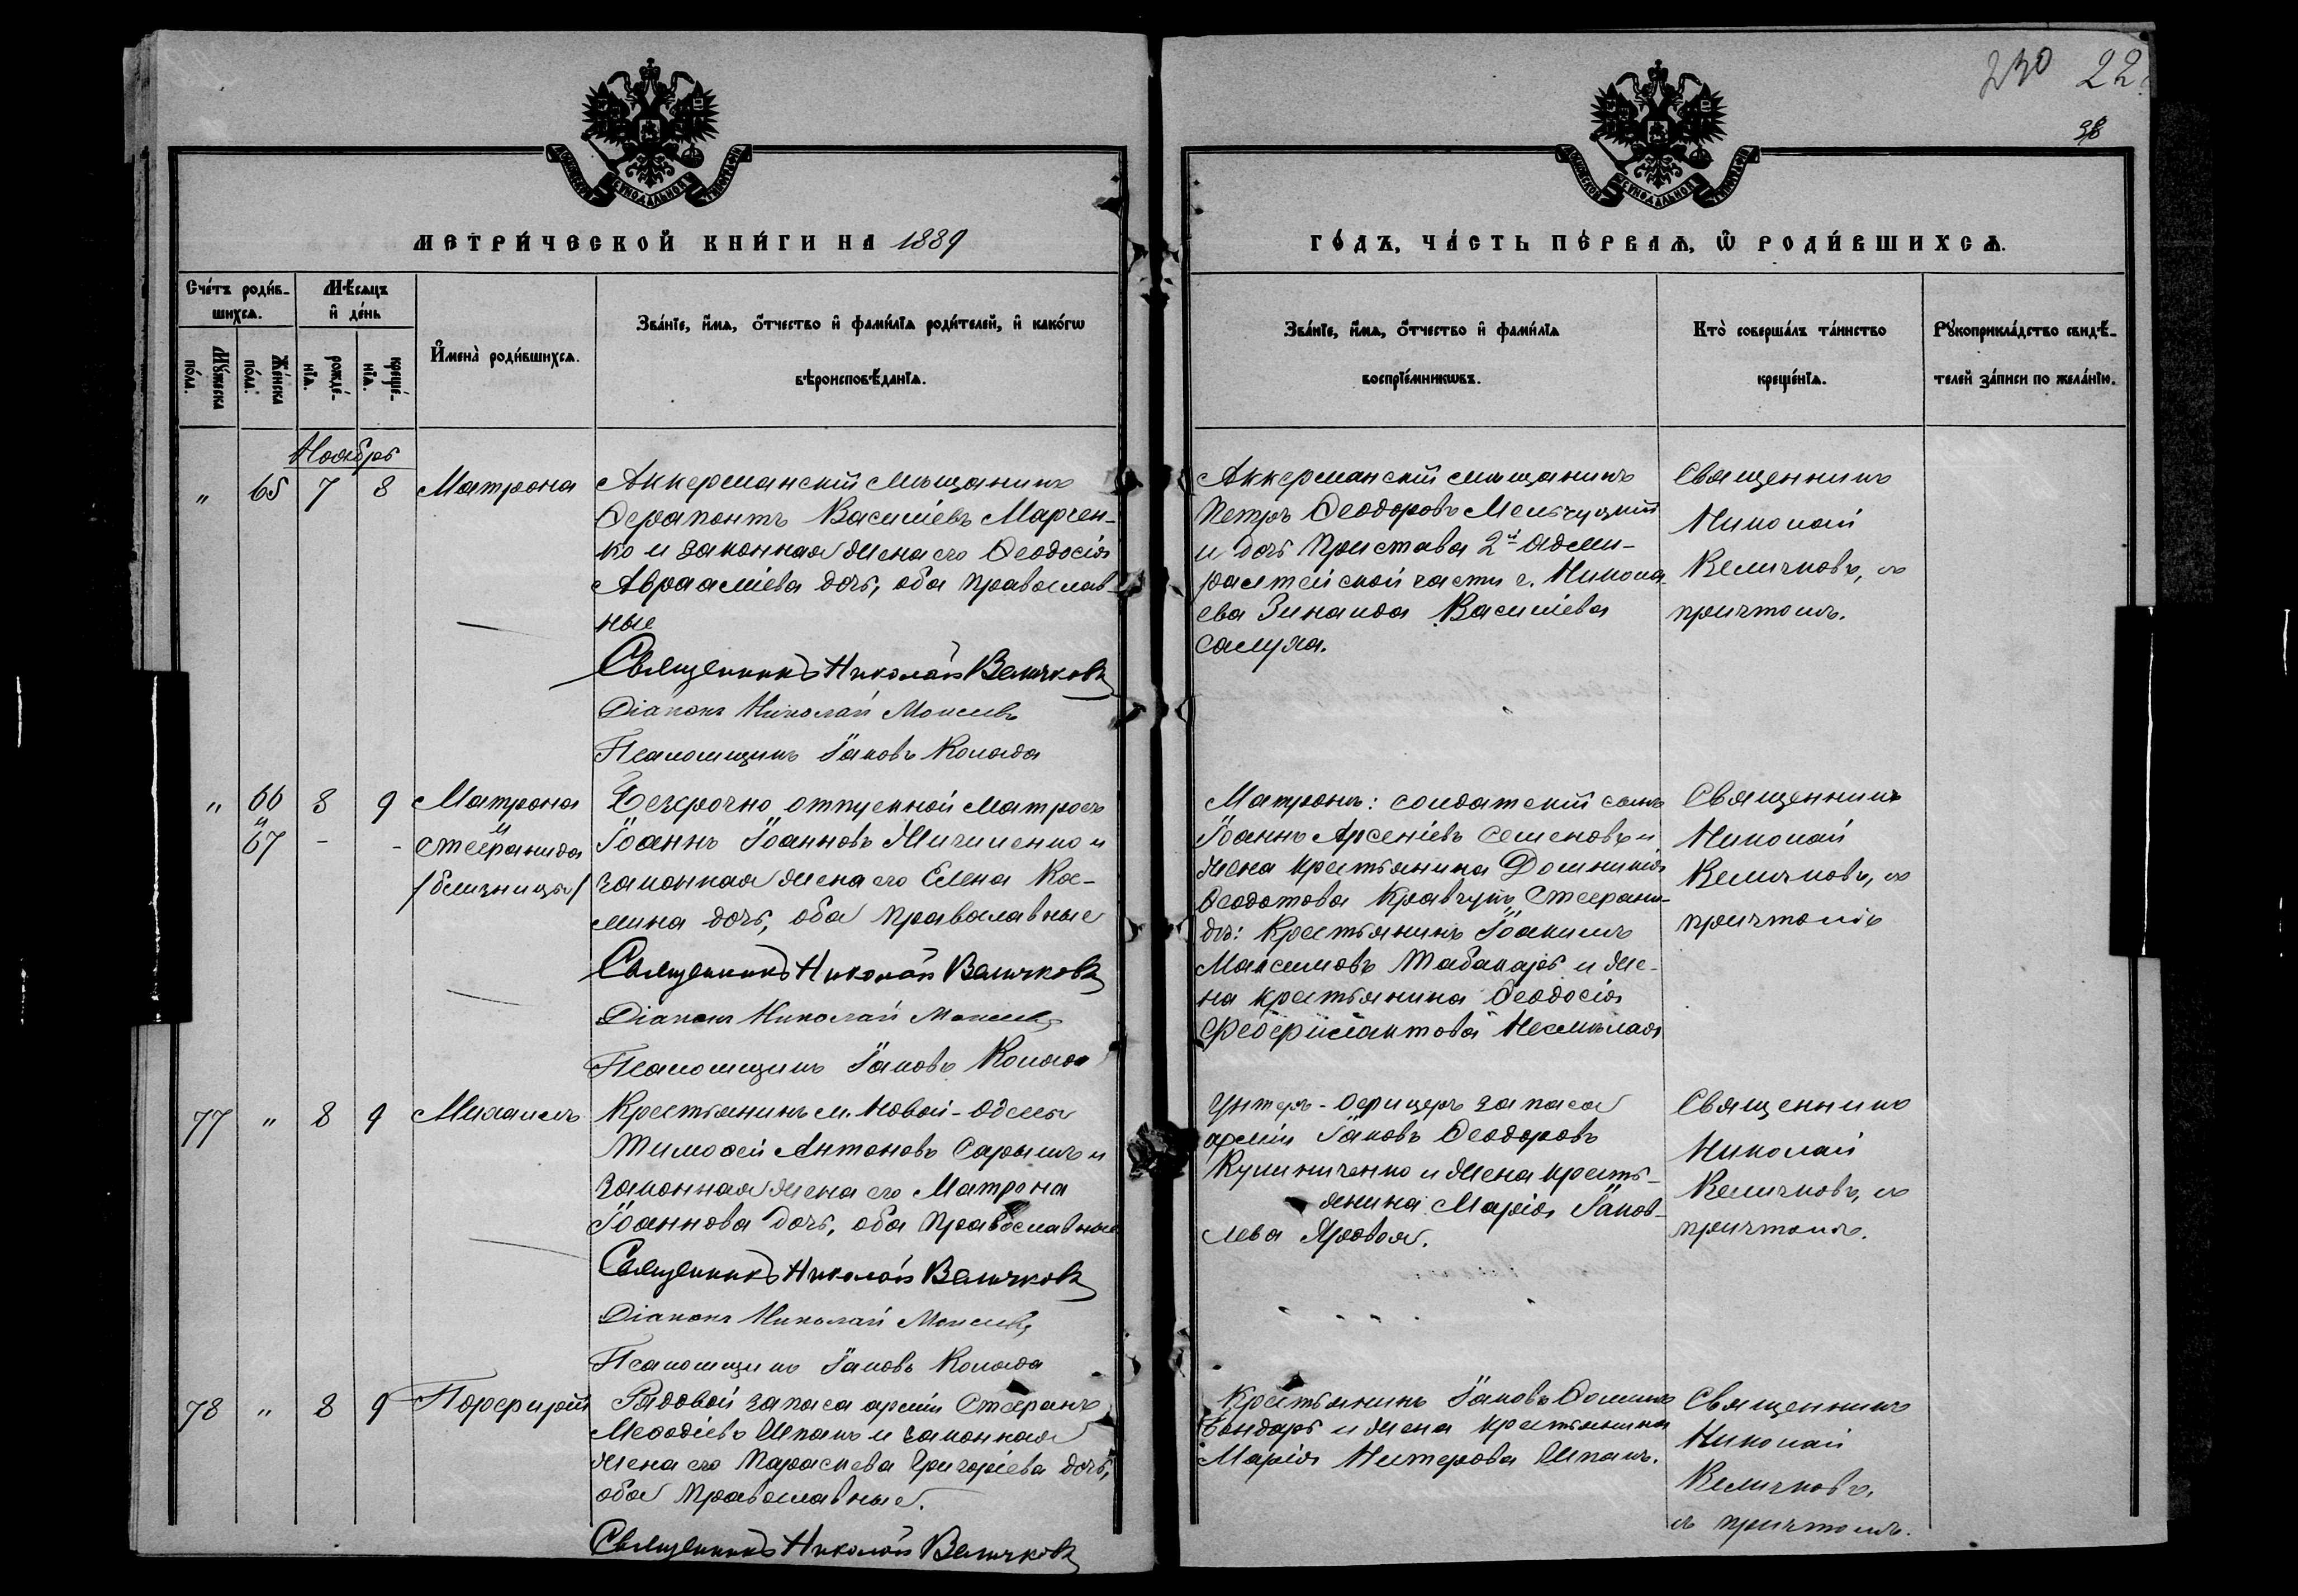 230 22
38
МОСКОВСКОЙ СѴНОДАЛЬНОЙ ТИПОГРАФІИ
МОСКОВСКОЙ СѴНОДАЛЬНОЙ ТИПОГРАФІИ
МЕТРИ́ЧЕСКОЙ КНИ́ГИ НА 1889
ГО́ДЪ, ЧА́СТЬ ПЕ́РВАѦ, Ѿ РОДИ́ВШИХСѦ.
Сче́тъ роди́в-
шихсѧ.
Мѣ́сѧцъ
и҆ де́нь
Мꙋ́жеска
по́ла.
Же́нска
по́ла.
рожде́-
нїѧ.
креще́-
нїѧ.
И҆мена̀ роди́вшихсѧ.
Зва́нїе, и҆́мѧ, ѻ҆́тчество и҆ фами́лїѧ роди́телей, и҆ како́гѡ
вѣроисповѣ́данїѧ.
Зва́нїе, и҆́мѧ, ѻ҆́тчество и҆ фами́лїѧ
воспрїе́мникѡвъ.
Кто̀ соверша́лъ та́инство
креще́нїѧ.
Рꙋкоприкла́дство свидѣ́-
телей за́писи по жела́нїю.
Ноябрь
" 65 7 8 Матрона
Аккерманскій мѣщанинъ
Ѳерапонтъ Василіевъ Марчен-
ко и законная жена его Ѳеодосія
Авраамієва дочь, оба православ-
ные
Священникъ Николай Величковъ
Діаконъ Николай Моисеевъ
Псаломщикъ Іаковъ Коляда
Аккерманскій мѣщанинъ
Петръ Ѳеодоровъ Мельчуцкій
и дочь Пристава 2й Адми-
ралтейской части г. Никола-
ева Зинаида Василіева
Салуха.
Священникъ
Николай
Величковъ, съ
причтомъ.
" 66 8 9 Матрона
и и
67 - - Стефанида
/близницы/
Безсрочно отпускной матросъ
Іоаннъ Іоанновъ Мичиленко и
законная жена его Елена Кос-
мина дочь, оба православные
Священникъ Николай Величковъ
Діаконъ Николай Моисеевъ
Псаломщикъ Іаковъ Коляда
Матронѣ: солдатскій сынъ
Іоаннъ Арсеніевъ Семеновъ и
жена крестьянина Домникія
Ѳеодотова Кравчукъ, Стефани-
дѣ: Крестьянинъ Іоакимъ
Максимовъ Табакарь и же-
на крестьянина Ѳеодосія
Несмѣлая
Священникъ
Николай
Величковъ, съ
причтомъ
77 " 8 9 Михаилъ
Крестьянинъ м. Новой-Одессы
Тимоѳей Антоновъ Сарычъ и
законная жена его Матрона
Іоаннова дочь, оба православные
Священникъ Николай Величковъ
Діаконъ Николай Моисеевъ
Псаломщикъ Іаковъ Коляда
Унтеръ-Офицеръ запаса
арміи Іаковъ Ѳеодоровъ
Кушниченко и жена кресть-
янина Марія Іаков-
лева Яровая.
Священникъ
Николай
Величковъ, съ
причтомъ.
78 " 8 9 Порфирій
Рядовой запаса арміи Стефанъ
Меѳодіевъ Шпакъ и законная
жена его Параскева Григоріева дочь,
оба православные.
Священникъ Николай Величковъ
Крестьянинъ Іаковъ Ѳоминъ
Бондарь и жена крестьянина
Марія Нестерова Шпакъ.
Священникъ
Николай
Величковъ,
съ причтомъ.